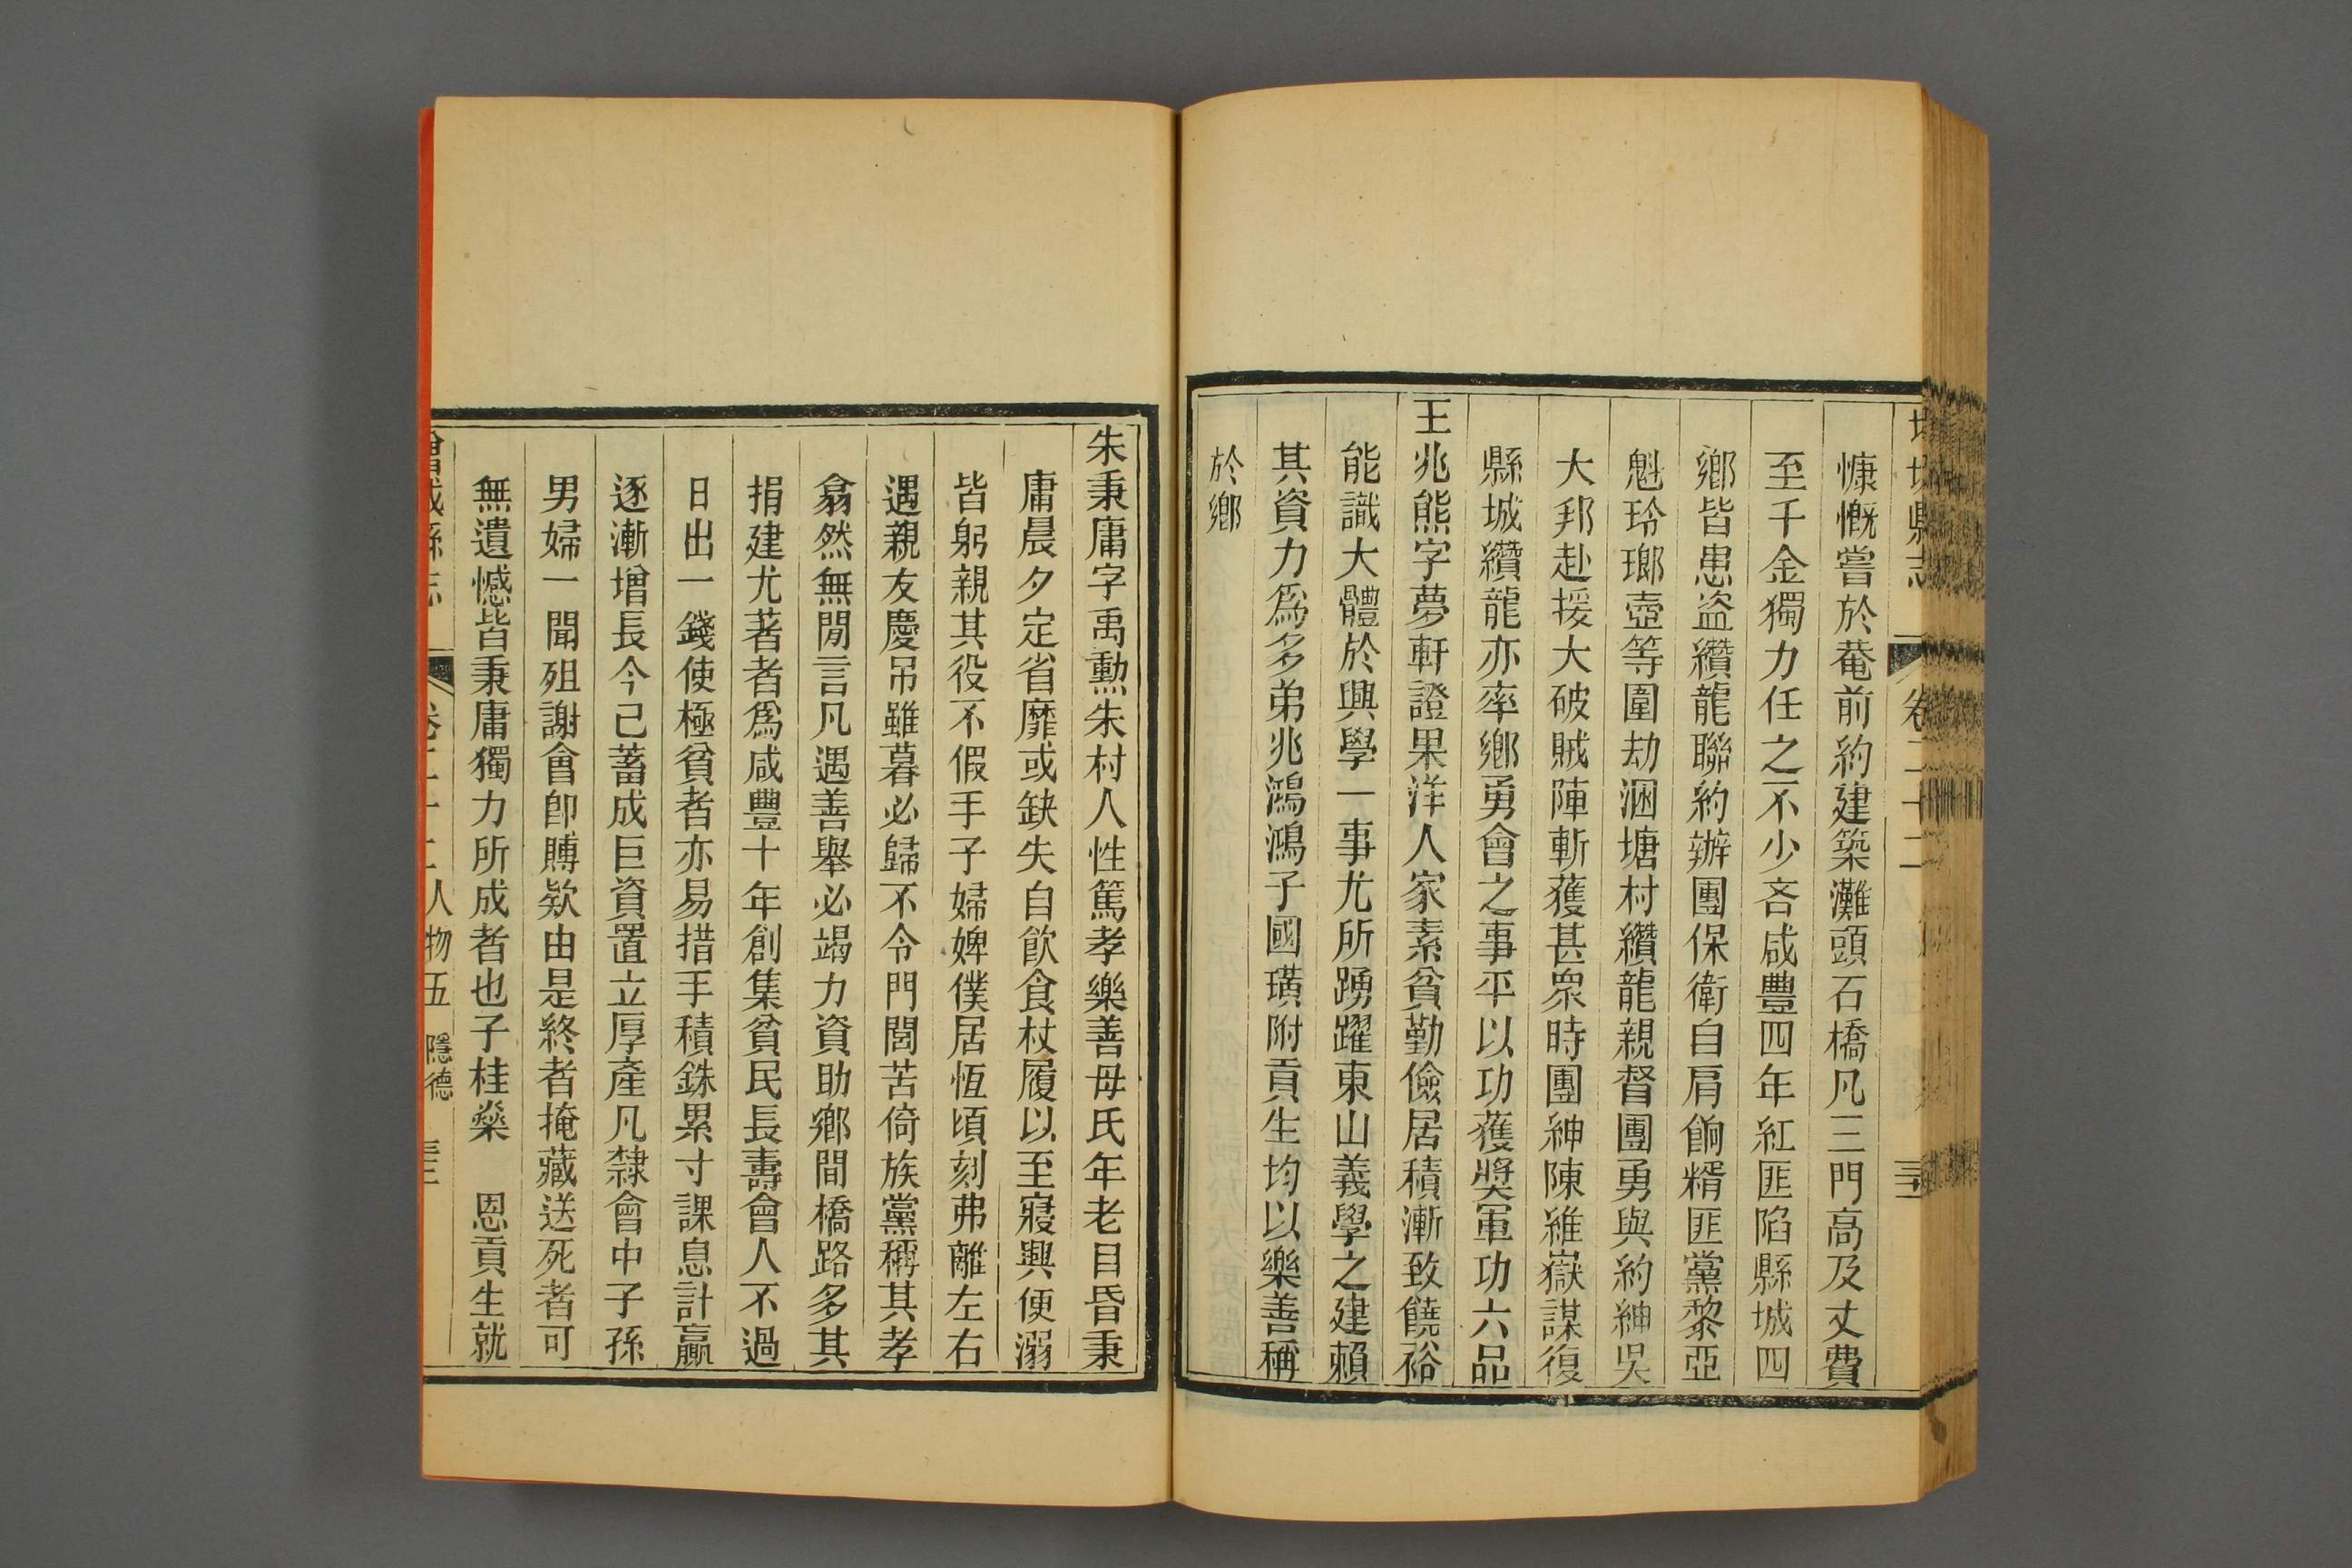 縣志
卷二十二
慷慨嘗於菴前約建築灘頭石橋凡三門高及丈費
至千金獨力任之不少吝咸豐四年紅匪陷縣城四
鄉皆患盜纘龍聯約辦團保衛自肩餉糈匪黨黎亞
魁玲瑯壺等圍劫溷塘村纘龍親督團勇與約紳吳
大邦赴援大破賊陣斬獲甚眾時團紳陳維嶽謀復
縣城纘龍亦率鄉勇會之事平以功獲奬軍功六品
王兆熊字夢軒證果洋人家素貧勤儉居積漸致饒裕
能識大體於興學一事尤所踴躍東山義學之建賴
其資力爲多弟兆鴻鴻子國璜附貢生均以樂善稱
於鄉
朱秉庸字禹勳朱村人性篤孝樂善母氏年老目昏秉
庸晨夕定省靡或缺失自飲食杖履以至寢興便溺
皆躬親其役不假手子婦婢僕居恆頃刻弗離左右
遇親友慶吊雖暮必歸不令門閭苦倚族黨稱其孝
翕然無閒言凡遇善舉必竭力資助鄉間橋路多其
捐建尤著者爲咸豐十年創集貧民長壽會人不過
日出一錢使極貧者亦易措手積銖累寸課息計贏
逐漸增長今已蓄成巨資置立厚產凡隸會中子孫
男婦一聞殂謝會卽賻欵由是終者掩藏送死者可
無遺憾皆秉庸獨力所成者也子桂燊　恩貢生就
增城縣志
卷二十二 人物五 隱德